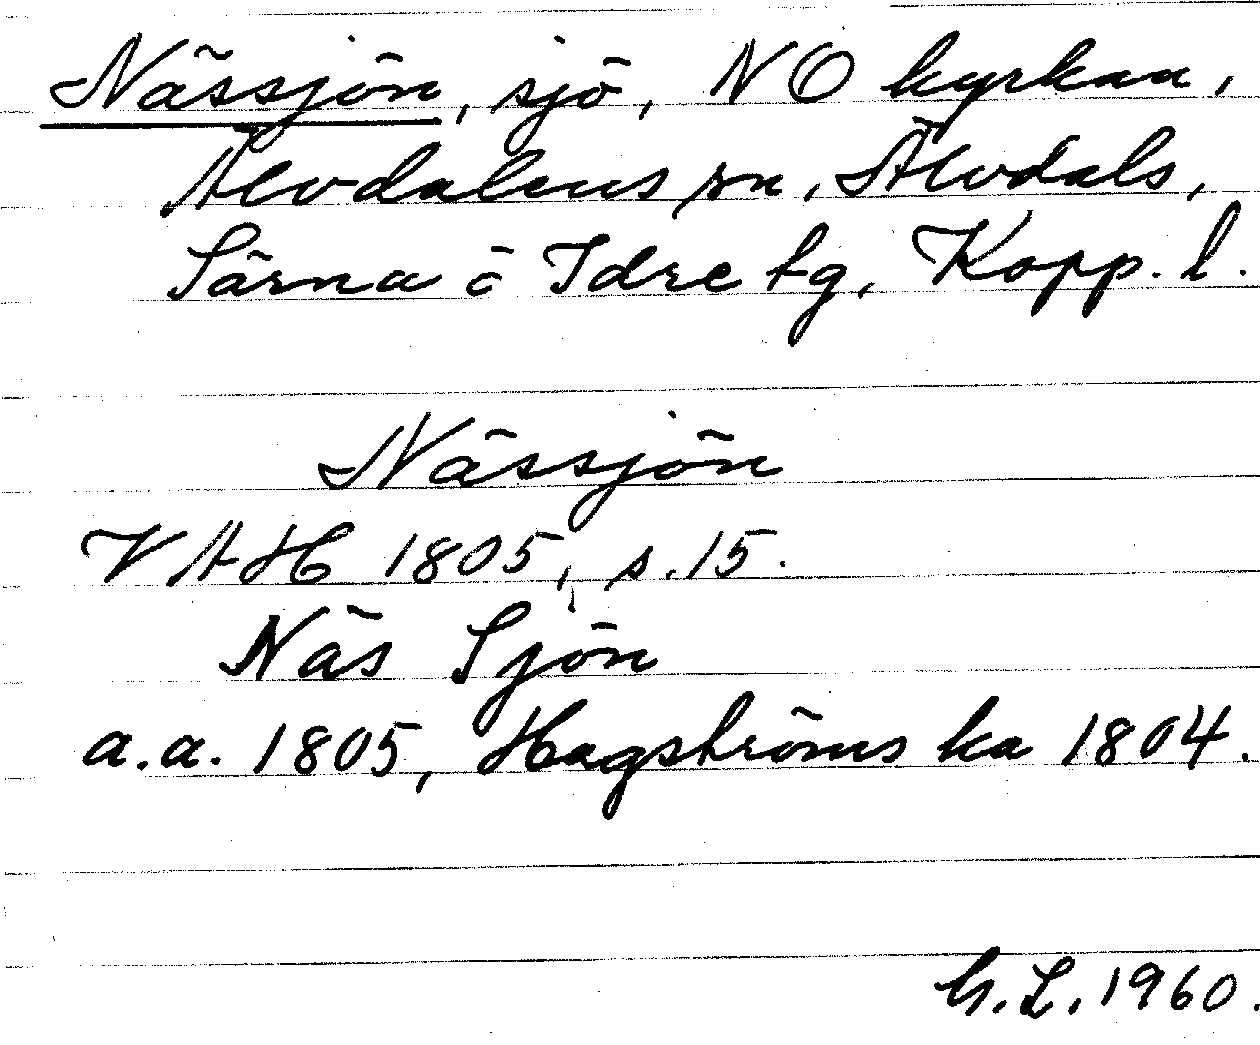 Nässjön, sjö, NO kyrkan,
Älvdalens sn, Älvdals,
Särna ö Idre tg, Kopp. l.
Nässjön
VAH 1805, s. 15.
Näs Sjön
a.a. 1805, Hagströms ka 1804.
G.L. 1960.